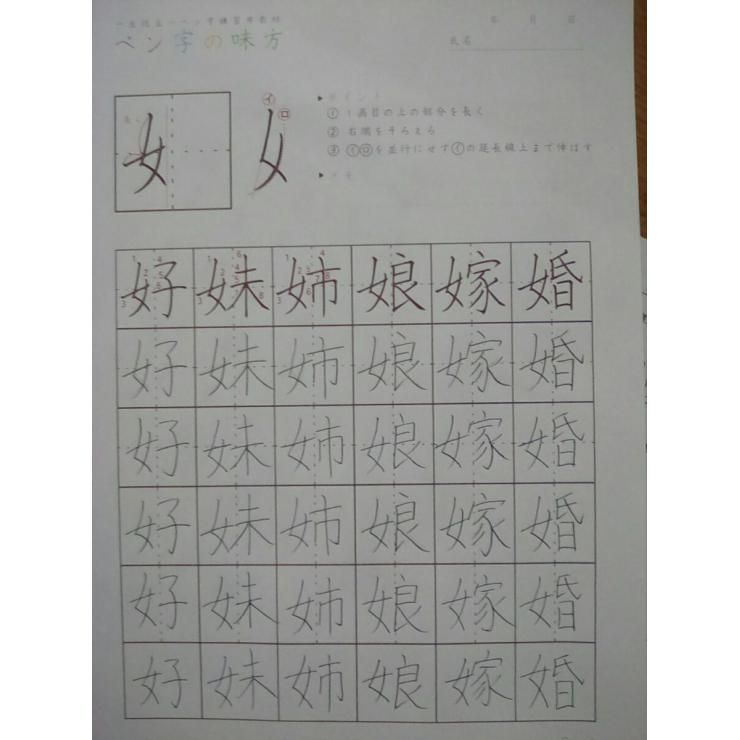 一生役立つペン字練習帯教材
ペン字の味方
年 月 日
氏名
長く
女
イ ロ
▶ポイント
① 1画目の上の部分を長く
② 右端をそろえる
③ ㋑㋺を並行にせず㋑の延長線上まで伸ばす
▶メモ
好 妹 姉 娘 嫁 婚
好 妹 姉 娘 嫁 婚
好 妹 姉 娘 嫁 婚
好 妹 姉 娘 嫁 婚
好 妹 姉 娘 嫁 婚
好 妹 姉 娘 嫁 婚